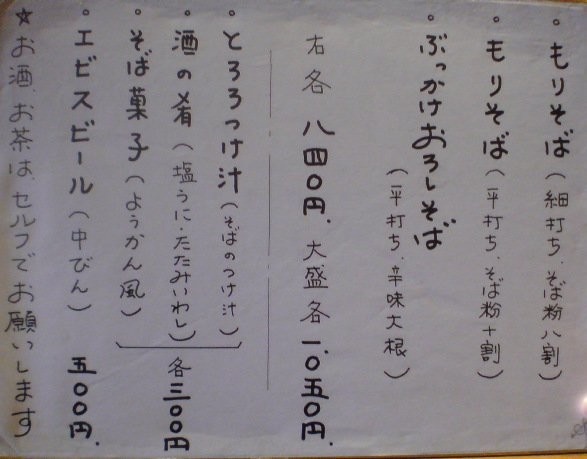 。もりそば（細打ち、そば粉八割）
。もりそば（平打ち、そば粉十割）
。ぶっかけおろしそば
（平打ち、辛味大根）
右各 八四〇円、大盛各 一、〇五〇円、
。とろろつけ汁（そばのつけ汁）
。酒の肴（塩うに・たたみいわし）
。そば菓子（ようかん風）
各 三〇〇円
。エビスビール（中びん） 五〇〇円、
☆お酒、お茶は、セルフでお願いします